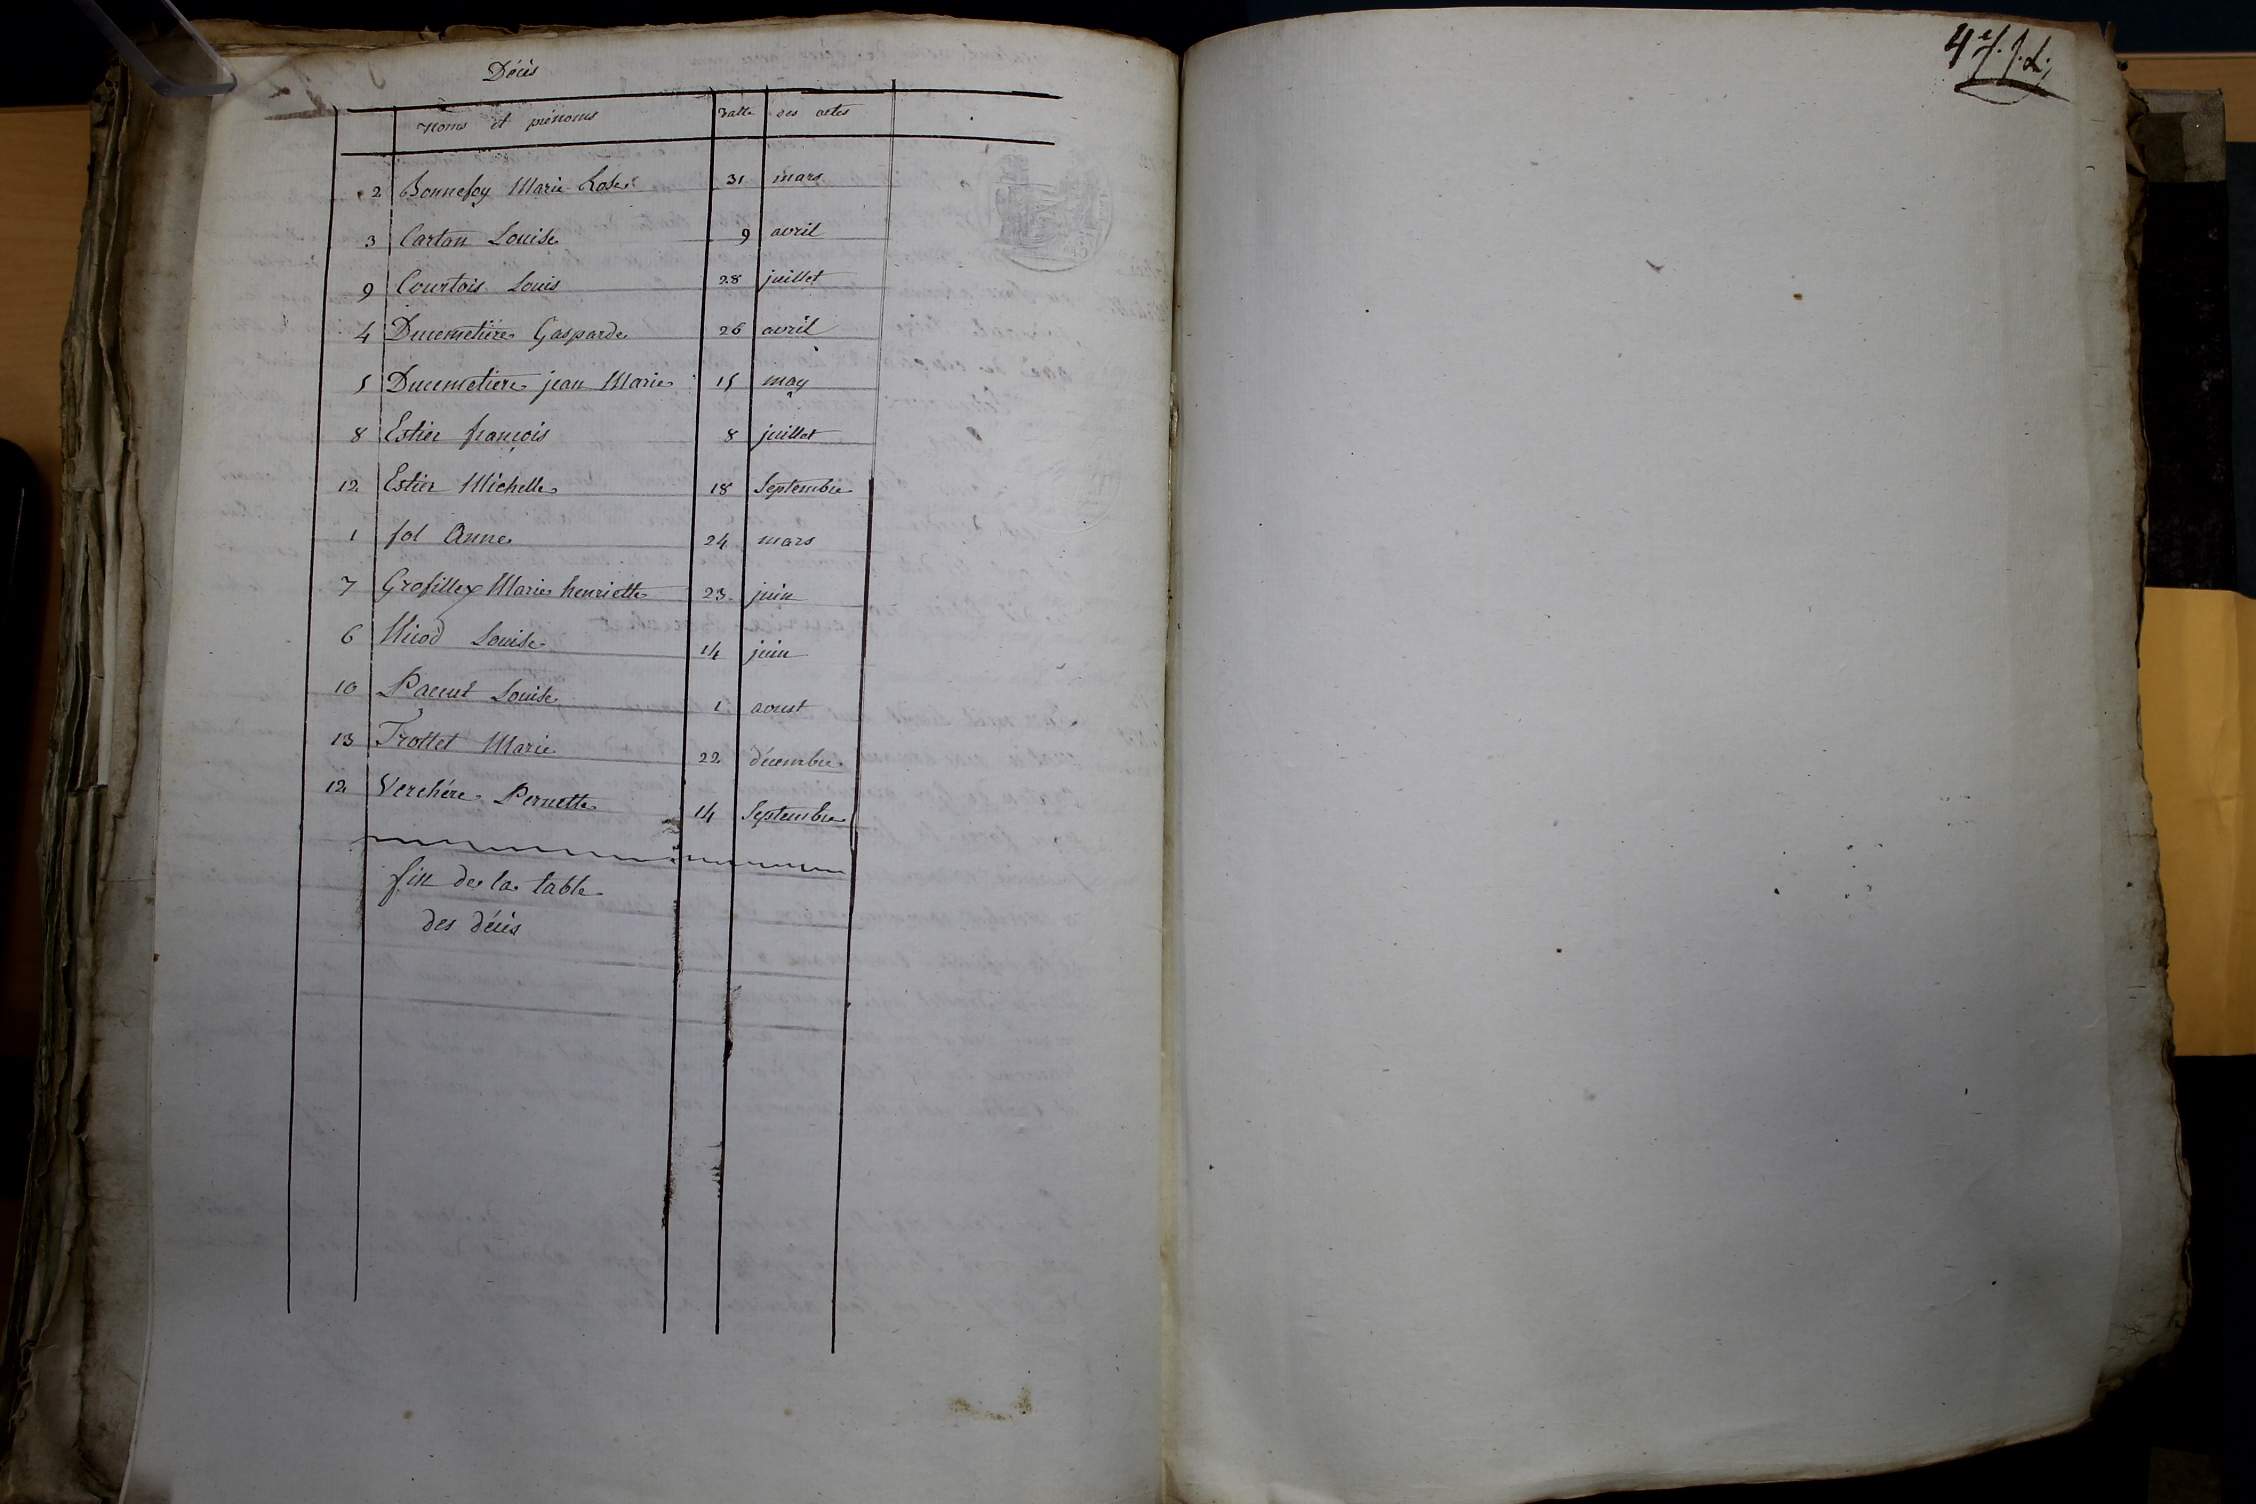 Décès
Noms et prénoms Datte des actes
2 Bonnefoy Marie Rose 31 mars
3 Cartan Louise 9 avril
9 Courtois Louis 28 juillet
4 Ducemetière Gasparde 26 avril
5 Ducemetiere jean Marie 15 may
8 Estier françois 8 juillet
12 Estier Michelle 18 Septembre
1 fol Anne 24 mars
7 Grofillex Marie henriette 23 juin
6 Nicod Louise 14 juin
10 Louise 1 aoust
13 Trottet Marie 22 décembre
12 Verchére Pernette 14 Septembre
fin de la table
des décès